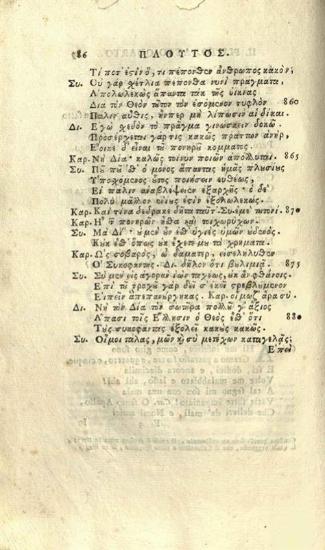 186 ΠΛΟΥΤΟΣ.
Τί ποτ' ἐςὶν ὅ, τι πέπονθεν ἄνθρωπος κακόν;
Συ. Οὐ γὰρ χέτλια πέπονθα νυνὶ πράγματα
Ἀπολωλεκὼς ἅπαντα τἀκ τῆς οἰκίας
Διὰ τὸν Θεὸν τῦτον τὸν ἐσόμενον τυφλὸν 860
Πάλιν αὖθις, ἤνπερ μὴ λίπωσιν αἱ δίκαι.
Δι. Ἐγὼ χεδὸν τὸ πρᾶγμα γινώσκειν δοκῶ
Προσέρχεται γάρ τις κακῶς πράττων ἀνὴρ,
Ἔοικε δ' εἶναι τῦ πονηρῦ κόμματος.
Καρ. Νὴ Δία καλῶς τοίνυν ποιῶν ἀπόλλυται. 865
Συ. Πῦ πῦ 'θ' ὁ μόνος ἅπαντας ἡμᾶς πλυσίυς
Ὑποχόμενος ὗτος ποιήσειν εὐθέως;
Εἰ πάλιν ἀναβλέψειεν ἐξαρχῆς· ὁ δὲ
Πολὺ μᾶλλον ἐνίυς ἐςὶν ἐξολωλεκώς.
Καρ. Καὶ τίνα δέδρακε δῆτα ταῦτ'. Συ. ἐμὲ τυτονί. 870
Καρ. Ἦ τῶν πονηρῶν ἦθα καὶ τοιχωρύχων.
Συ. Μὰ Δί' ὐ μὲν ὖν ἐθ' ὑγιὲς ὑμῶν ὐδενὸς,
Κὐκ ἐθ' ὅπως ὐκ ἔχετέ μυ τὰ χρήματα.
Καρ. Ὡς σοβαρὸς, ὦ δάματερ, εἰσελήλυθεν
Ὁ Συκοφάντης. Δι. δῆλον ὅτι βυλιμιᾷ. 875
Συ. Σὺ μὲν εἰς ἀγορὰν ἰὼν ταχέως, ὐκ ἂν φθάνοις
Ἐπὶ τῦ τροχῦ γὰρ δεῖ σ' ἐκεῖ τρεβλύμενον
Εἰπεῖν ἃ πεπανύργηκας. Καρ. οἴμωξ' ἄρα σύ.
Δι. Νὴ τὸν Δία τὸν σωτῆρα πολλῦ γ' ἄξιος
Ἅπασι τοῖς Ἕλλησιν ὁ Θεὸς ἔθ' ὅτι 880
Τὺς συκοφάντας ἐξολεῖ κακὺς κακῶς.
Συ. Οἴμοι τάλας, μῶν καὶ σὺ μετέχων καταγελᾷς;
Ἐπεὶ